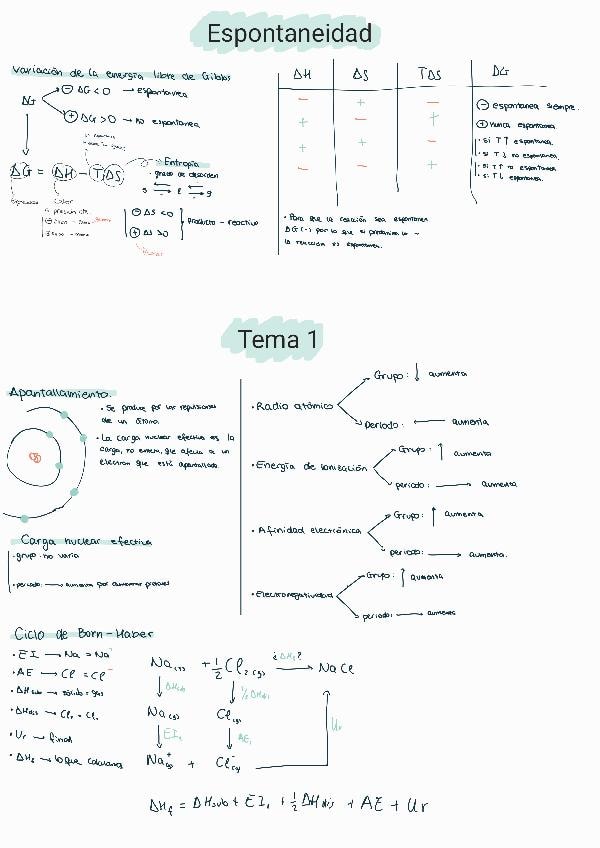 Espontaneidad
Variación de la energía libre de Gibbs
ΔG
⊖ ΔG < 0 → espontanea
⊕ ΔG > 0 → no espontanea
ΔG = ΔH - TΔS
Entropía
· grado de desorden
s l g
calor
a presión cte
⊖ ΔS < 0
⊕ ΔS > 0
producto - reactivo
ΔH ΔS TΔS ΔG
- + - ⊖ espontanea siempre.
+ - + ⊕ nunca espontanea.
+ + - · si T↑ espontanea.
· si T↓ no espontanea.
- - + · si T↑ no espontanea
· si T↓ espontanea.
· Para que la reacción sea espontanea
ΔG (-) por lo que si predomina lo -
la reacción es espontanea.
Tema 1
Apantallamiento.
· Se produce por las repulsiones
de un átomo.
· La carga nuclear efectiva es la
carga, no entera, que afecta a un
electron que está apantallado.
Carga nuclear efectiva
· grupo: no varia
· periodo: → aumenta por aumentar protones
· Radio atómico
Grupo: ↓ aumenta
periodo: ← aumenta
· Energía de ionización
Grupo: ↑ aumenta
periodo: → aumenta
· Afinidad electrónica
Grupo: ↑ aumenta
periodo: → aumenta.
· Electronegatividad
Grupo: ↑ aumenta
periodo: → aumenta
Ciclo de Born-Haber
· EI → Na = Na⁺
· AE → Cl = Cl⁻
· ΔHsub → sólido = gas
· ΔHdis → Cl₂ = Cl.
· Ur → final
· ΔHf → lo que calculamos
Na(s) + 1/2 Cl₂(g) ¿ΔHf? → NaCl
ΔHsub 1/2 ΔHdis
Na(g) Cl(g)
EI₁ AE₁ Ur
Na⁺(g) + Cl⁻(g)
ΔHf = ΔHsub + EI₁ + 1/2 ΔHdis + AE + Ur